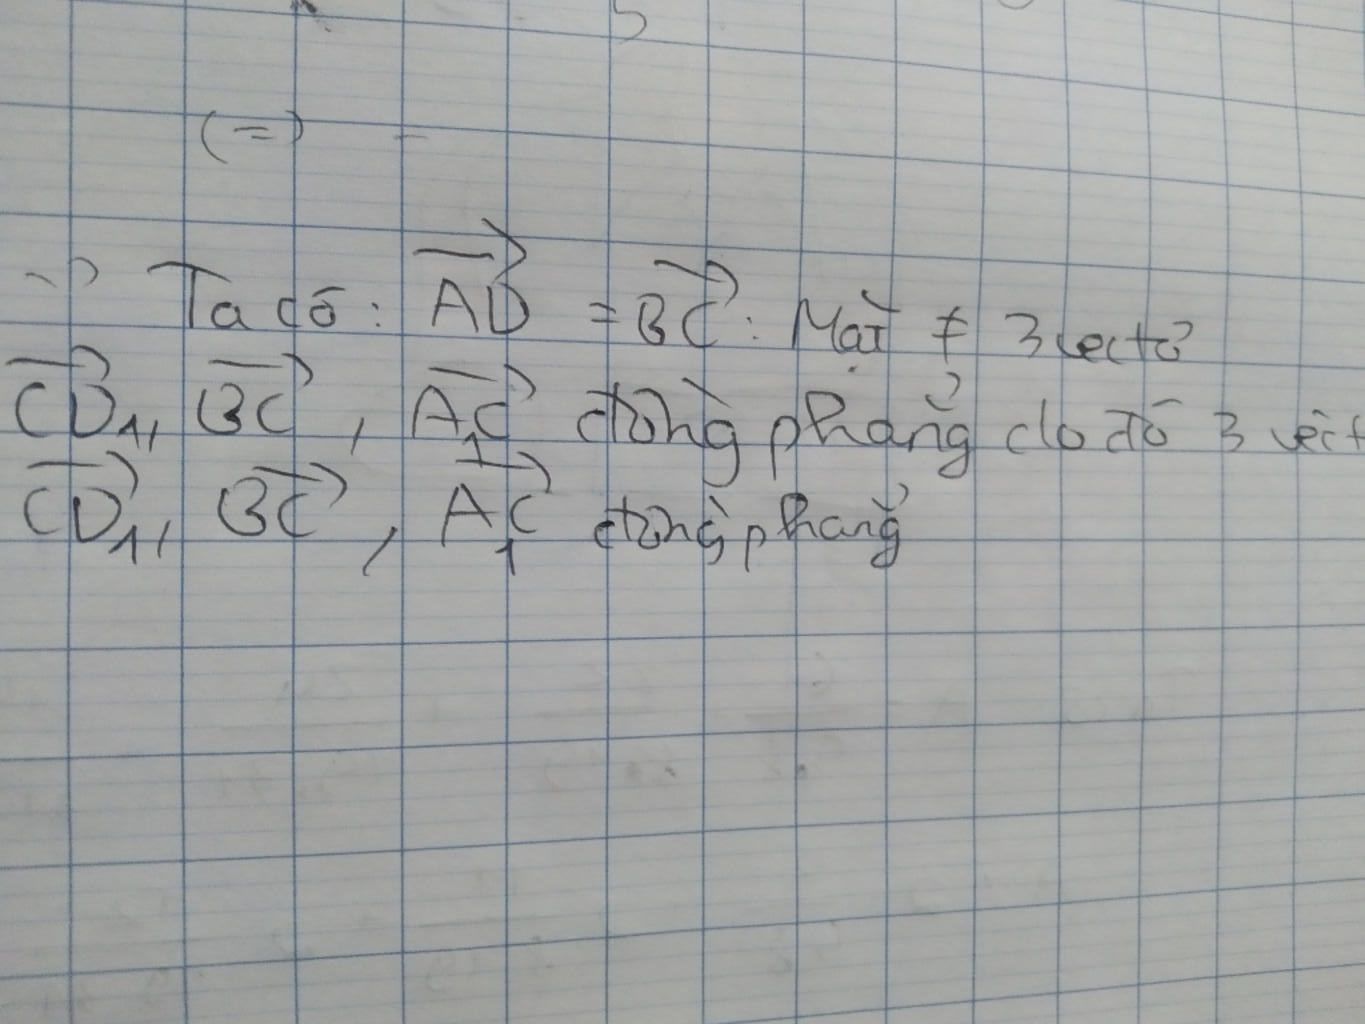 (=)
Ta có: AD = BC: Mặt ≠ 3 vectơ
CD₁, BC, A₁C đồng phẳng do đó 3 véct
CD₁, BC, A₁C đồng phẳng